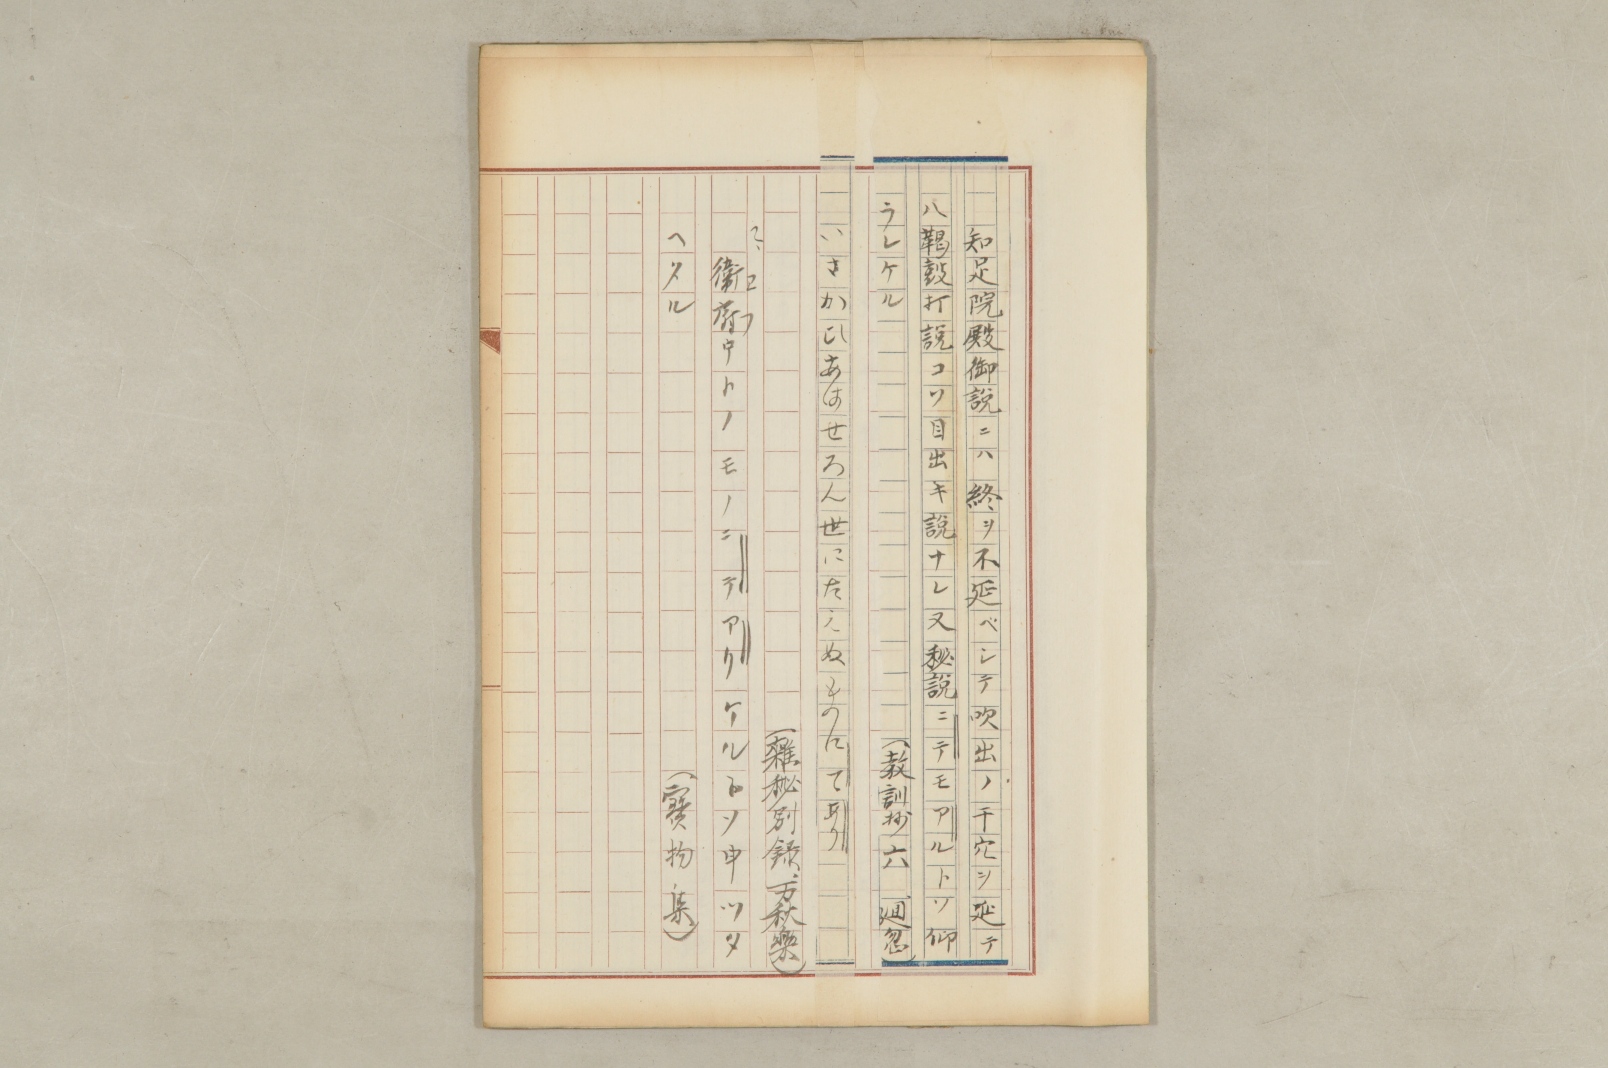 知足院殿御説ニハ終ヲ不延ベシテ吹出ノ干穴ヲ延テ
八鞨鼓打説コソ目出キ説ナレ又秘説ニテモアルトソ仰
ラレケル
(教訓抄六 廻忽)
いさかひあはせろん世にたえぬものにてあり
(雜秘別録、万秋樂)
衛府中トノモノニテアリケルトソ申ツタ
ヘタル
(寶物集)